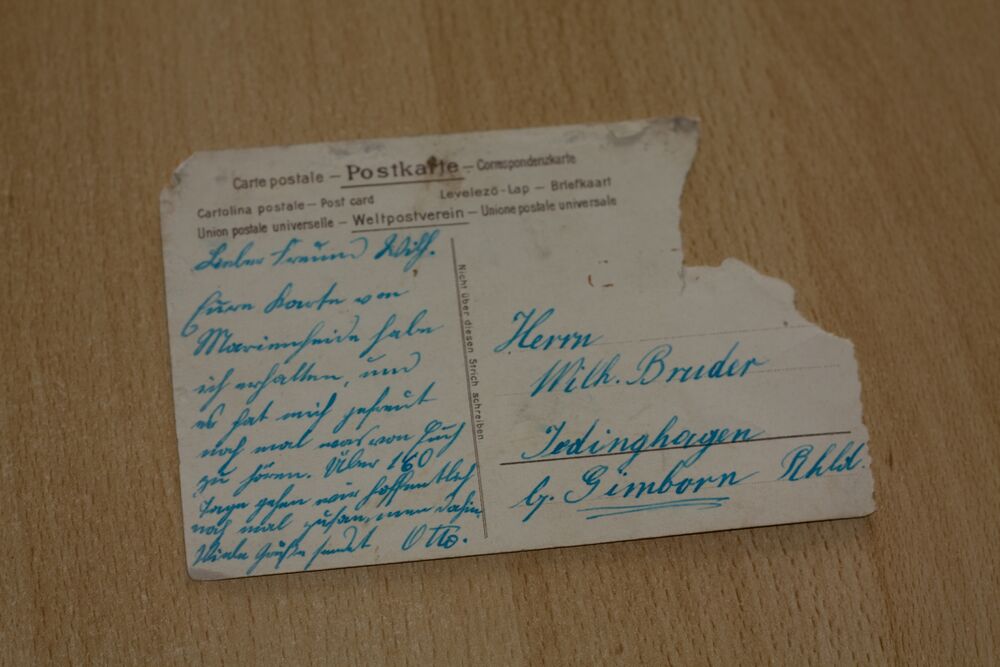 Carte postale – Postkarte – Correspondenzkarte
Cartolina postale – Post card Levelező-Lap – Briefkaart
Union postale universelle – Weltpostverein – Unione postale universale
Lieber Freund Wilh.
Eure Karte von
Marienheide habe
ich erhalten, und
es hat mich gefreut
noch mal was von Euch
zu hören. Über 160
Tage gehen wir hoffentlich
noch mal zusammen dahin
Viele Grüße sendet Otto.
Nicht über diesen Strich schreiben
Herrn
Wilh. Bruder
Jedinghagen
b. Gimborn Rhld.